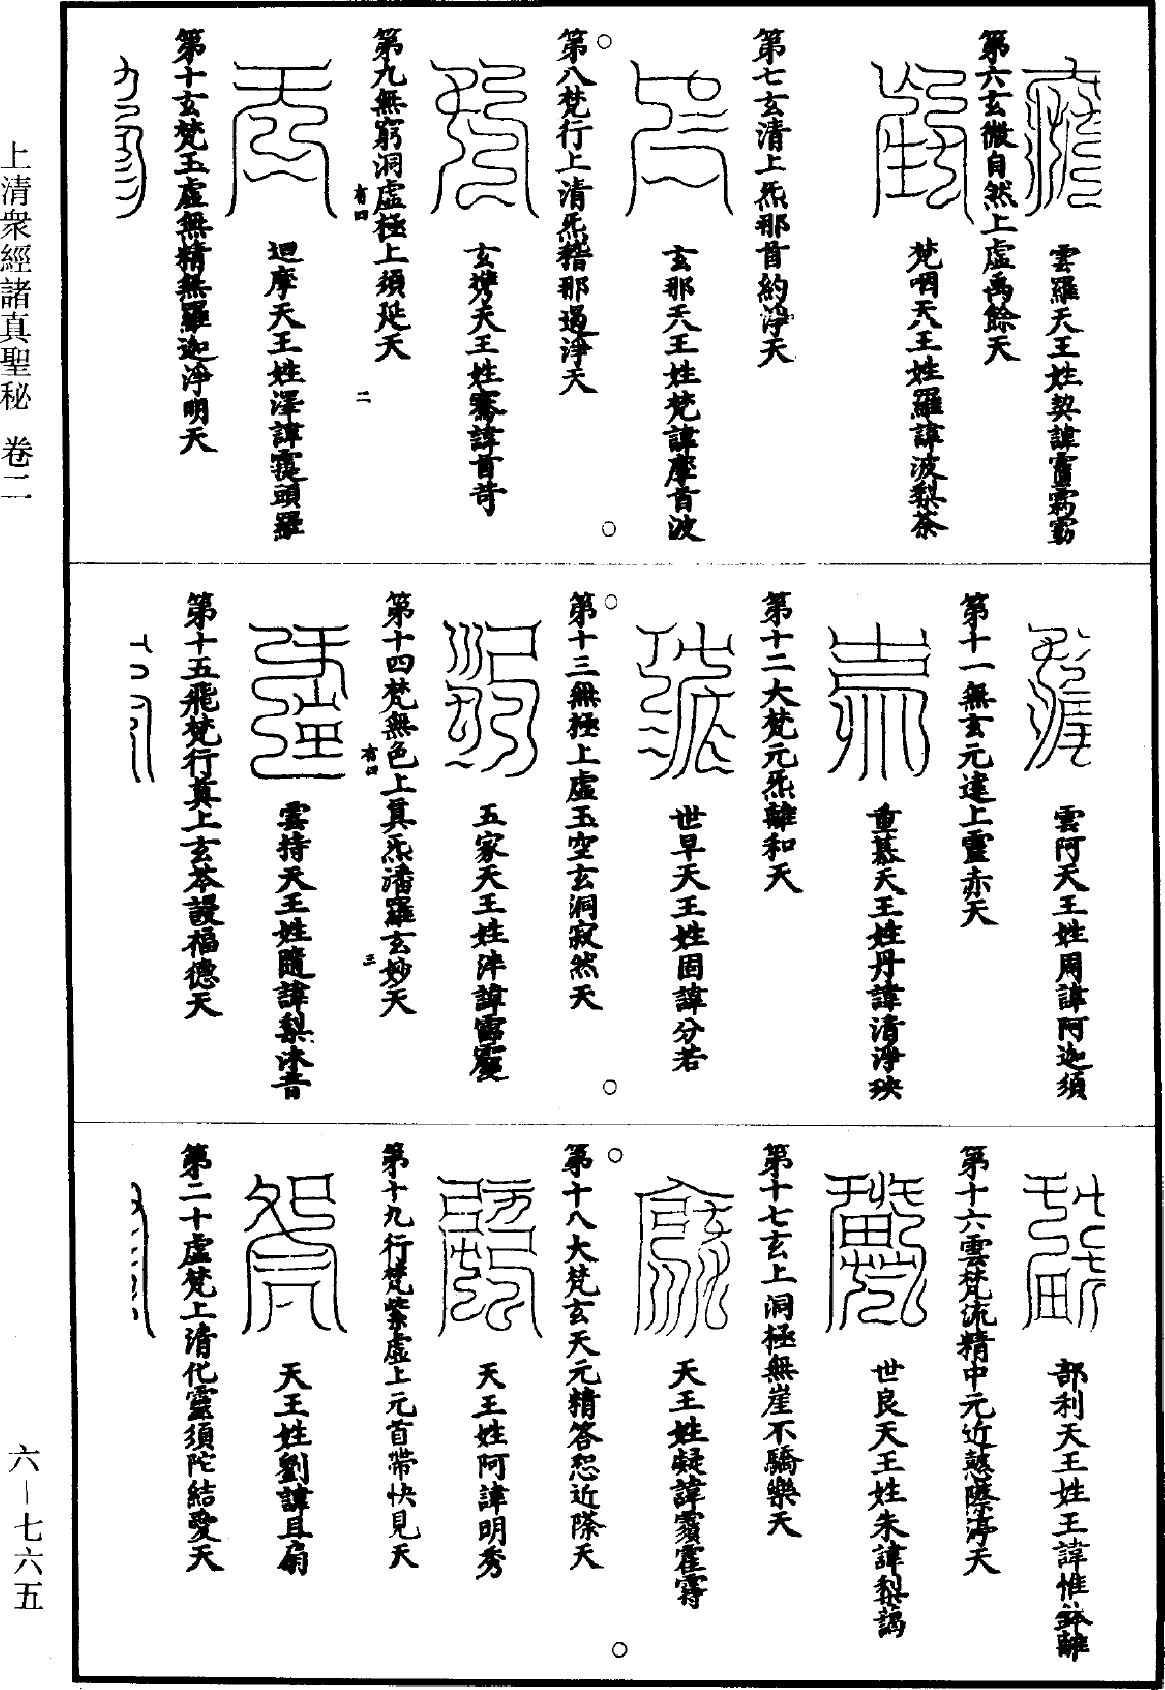 雲羅天王姓契諱
第六玄微自然上虛禹餘天
梵咽天八王姓羅諱波梨荼
第七玄清上炁那首約淨天
玄那天八王姓梵諱摩首波
第八梵行上清炁稽那邊淨天
玄㜫天王姓騫諱首苛
第九無窮洞虛極上須延天
有四
二
迴摩天王姓澤諱霆頭羅
第十玄梵玉虛無精無羅迦淨明天
雲阿天王姓周諱阿迦須
第十一無玄元達上靈赤天
重基天王姓丹諱清淨殃
第十二大梵元炁離和天
世早天王姓固諱分若
第十三無極上虛玉空玄洞寂然天
五家天王姓泮諱
第十四梵無色上真炁潘羅玄妙天
有四
三
雲持天王姓隨諱梨沐音
第十五飛梵行真上玄答謾福德天
部利天王姓王諱惟離
第十六雲梵流精中元近愍際淳天
世良天王姓朱諱梨謁
第十七玄上洞極無崖不驕樂天
天王姓凝諱
第十八大梵玄天元精答恕近際天
天王姓阿諱明秀
第十九行梵紫虛上元首帶快見天
天王姓劉諱且扇
第二十虛梵上清化靈須陀結愛天
上清衆經諸真聖秘 卷二
六—七六五